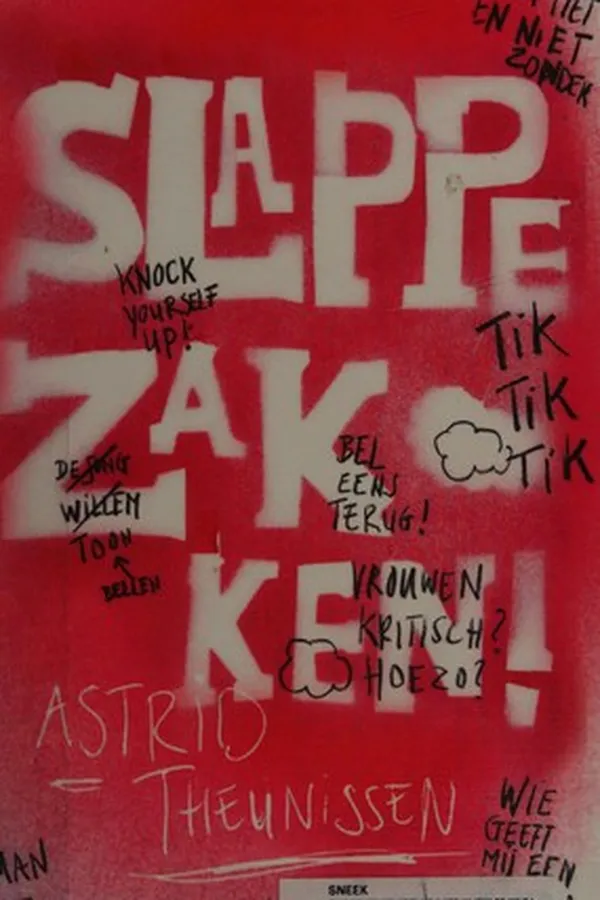 EN NIET
ZONDER
SLAPPE
KNOCK
YOURSELF
UP!
TIK
TIK
TIK
ZAK
BEL
EENS
TERUG!
DE JONG
WILLEM
TOON
BELLEN
KEN!
VROUWEN
KRITISCH?
HOEZO?
ASTRID
THEUNISSEN
WIE
GEEFT
MIJ EEN
MAN
SNEEK